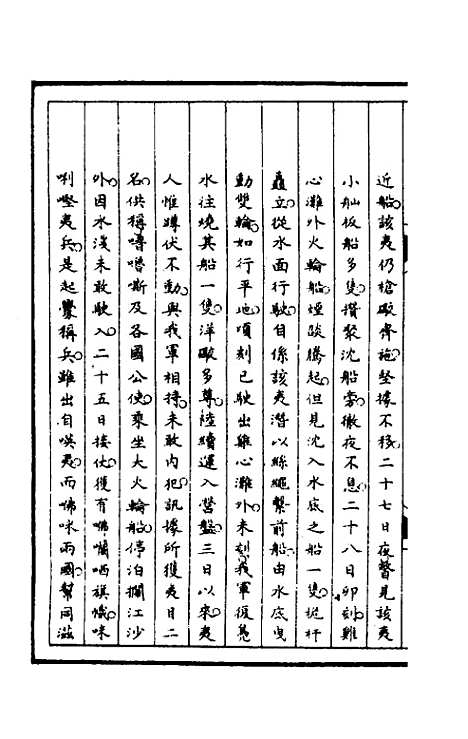 近船該夷仍槍礮齊施堅據不移二十七日夜瞥見該夷
小舢板船多隻攢聚沈船旁徹夜不息二十八日卯刻雞
心灘外火輪船煙燄騰起但見沈入水底之船一隻桅杆
矗立從水面行駛自係該夷潛以絲繩繫前船由水底曳
動雙輪如行平地頃刻已駛出雞心灘外未刻我軍復鳧
水往燒其船一隻洋礮多尊陸續運入營盤三日以來夷
人惟蹲伏不動與我軍相持未敢內犯訊據所獲夷目二
名供稱嘚嚕嘶及各國公使乘坐大火輪船停泊攔江沙
外因水淺未敢駛入二十五日接仗獲有咈囒哂旗幟咪
唎𠸄夷兵是起釁稱兵雖出自㗕夷而咈咪兩國幫同滋